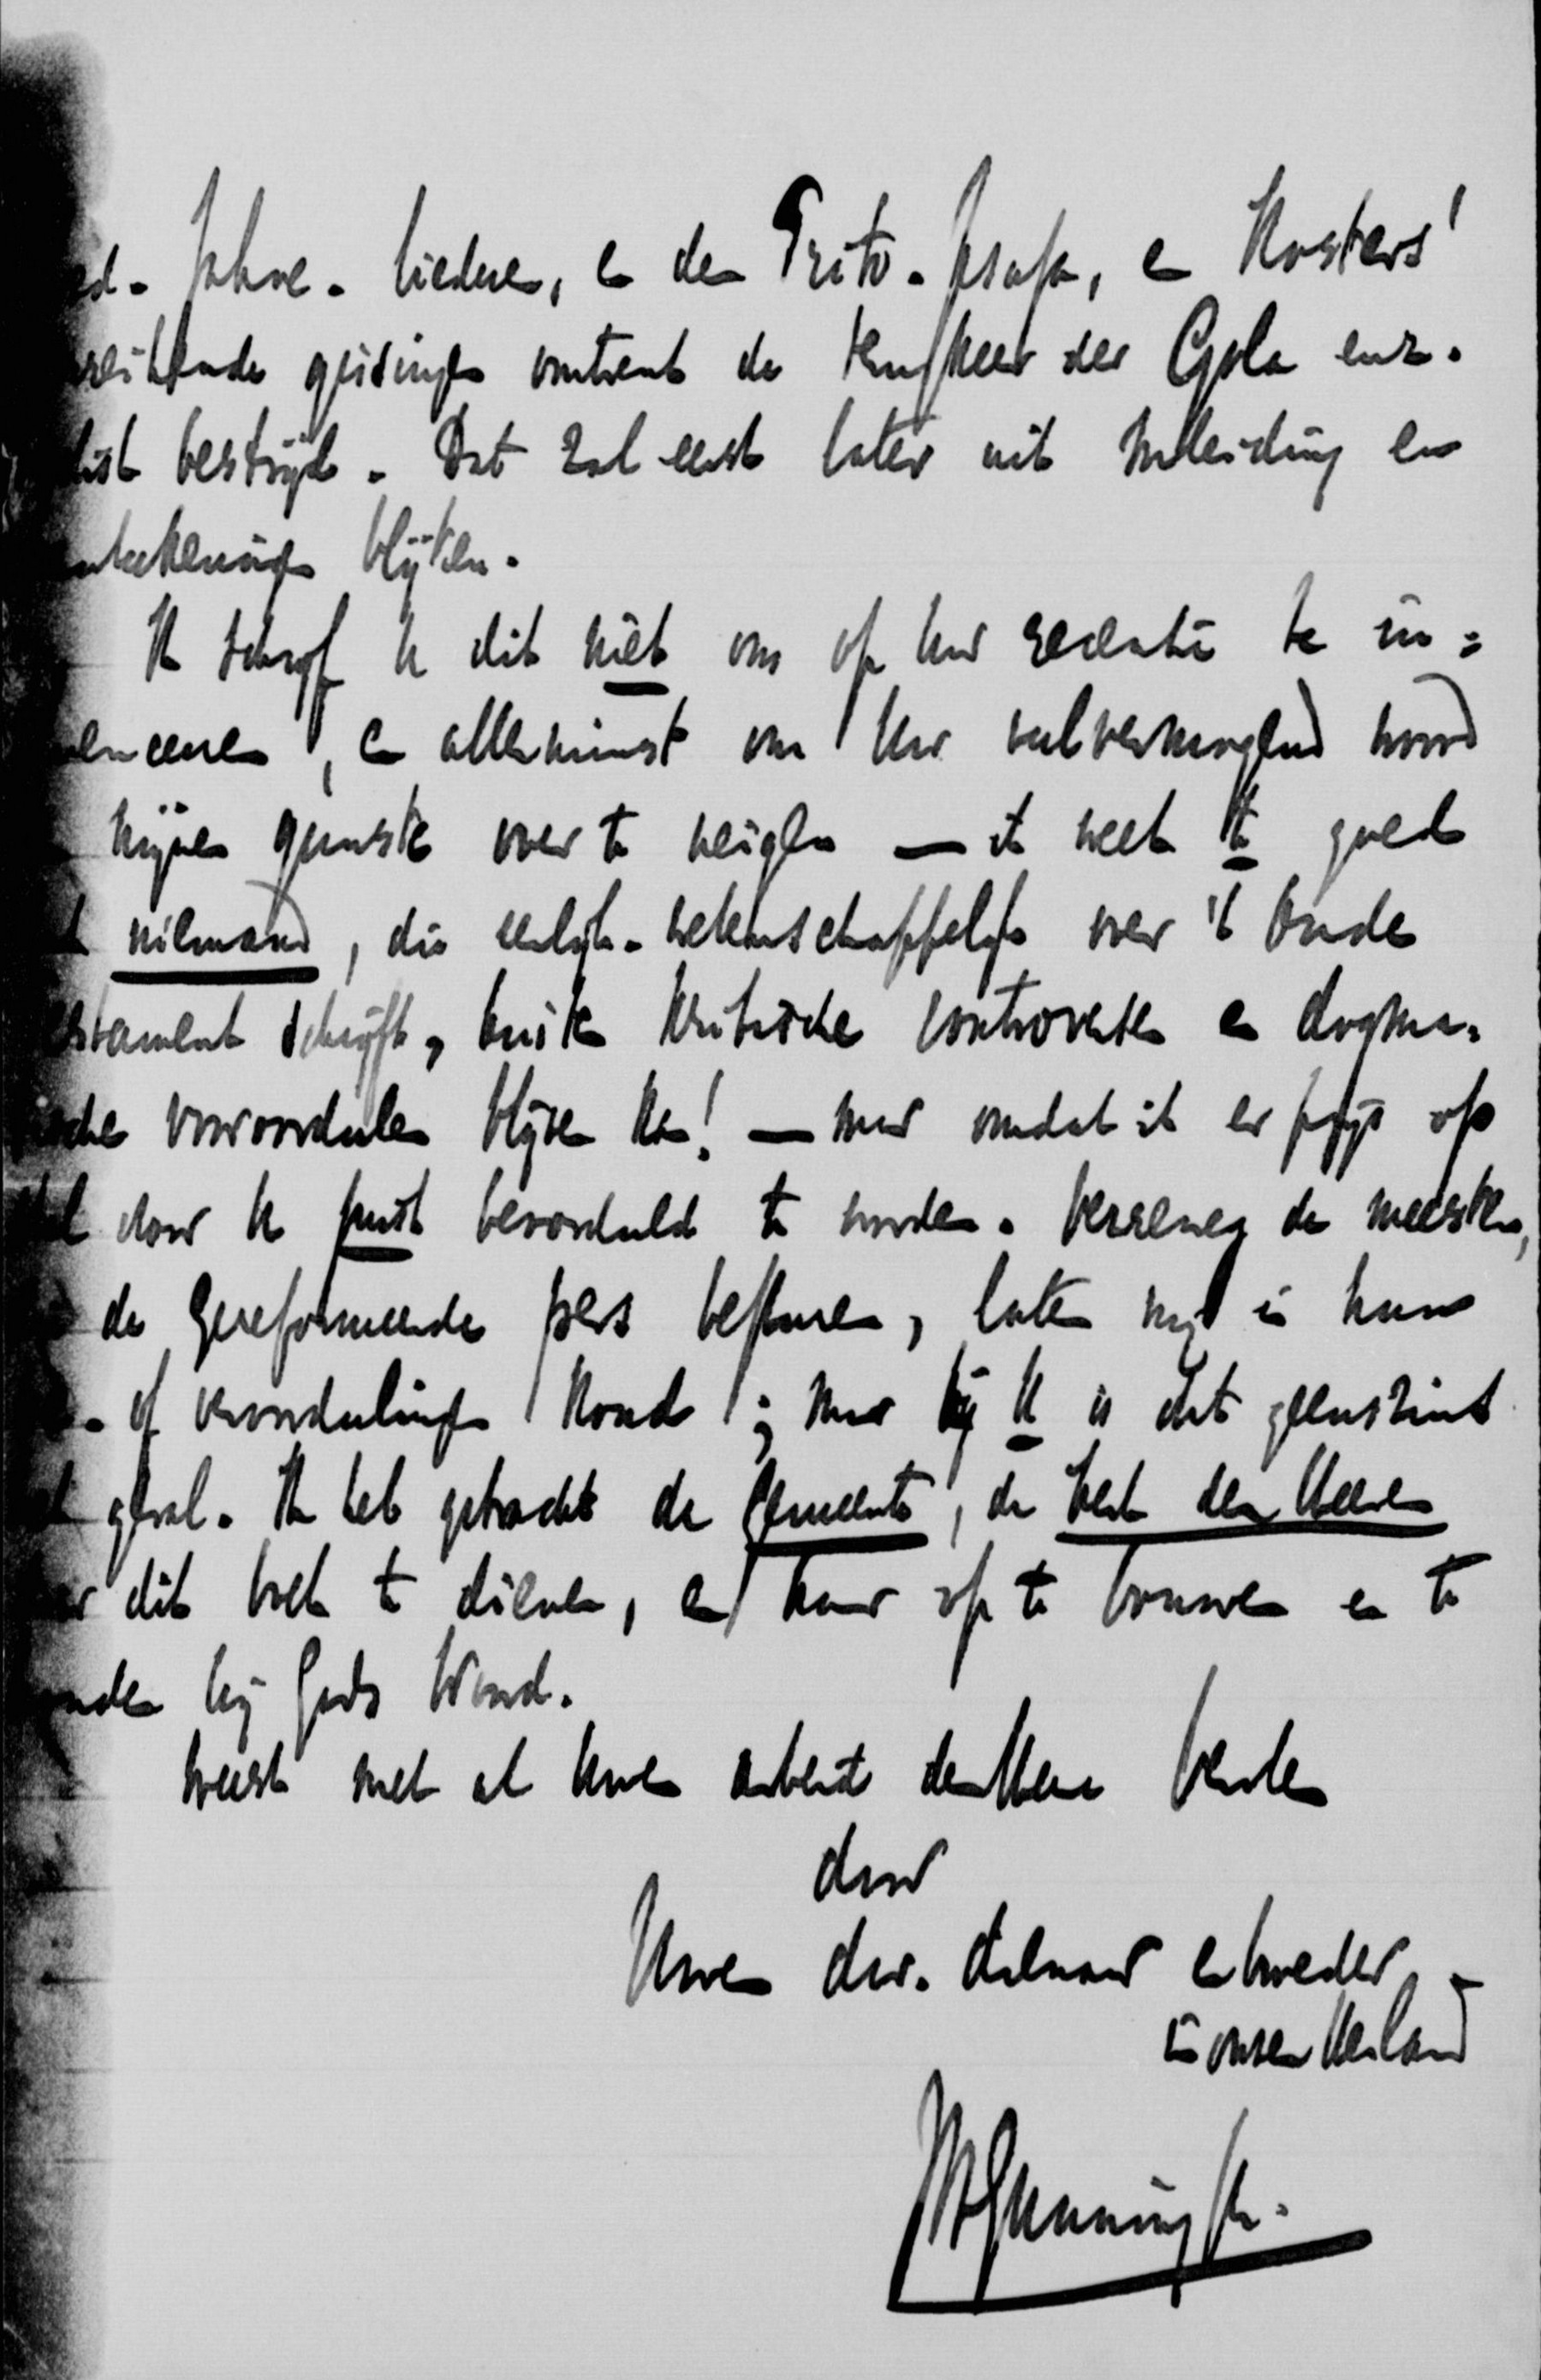 ed-Jahve-liederen, en den Trito-Jesaja, en Kosters'
gissingen omtrent de terugkeer der Gola enz.
juist bestrijd. Dat zal eerst later uit Inleiding en
aanteekeningen blijken.
Ik schrijf U dit niet om op Uw recensie te in-
fluenceeren, en allerminst om Uw veelvermogend woord
mijnen gunste over te neigen — ik weet te goed
niemand, die eerlijk-wetenschappelijk over 't Oude
Testament schrijft, buiten kritische controversen en dogma-
sche vooroordeelen blijven kan! — maar omdat ik er prijs op
stel door U juist beoordeeld te worden. Verreweg de meesten,
de Gereformeerde pers besturen, laten mij in hun
- of veroordeelingen koud; maar bij U is dit geenszins
geval. Ik heb getracht de Gemeente, de Kerk des Heeren
dit boek te dienen, en haar op te bouwen en te
bij Gods Woord.
Weest met al Uwen arbeid den Heere bevolen
door
Uwen dw. dienaar en broeder
in onzen Heiland
JHGunning Jr.